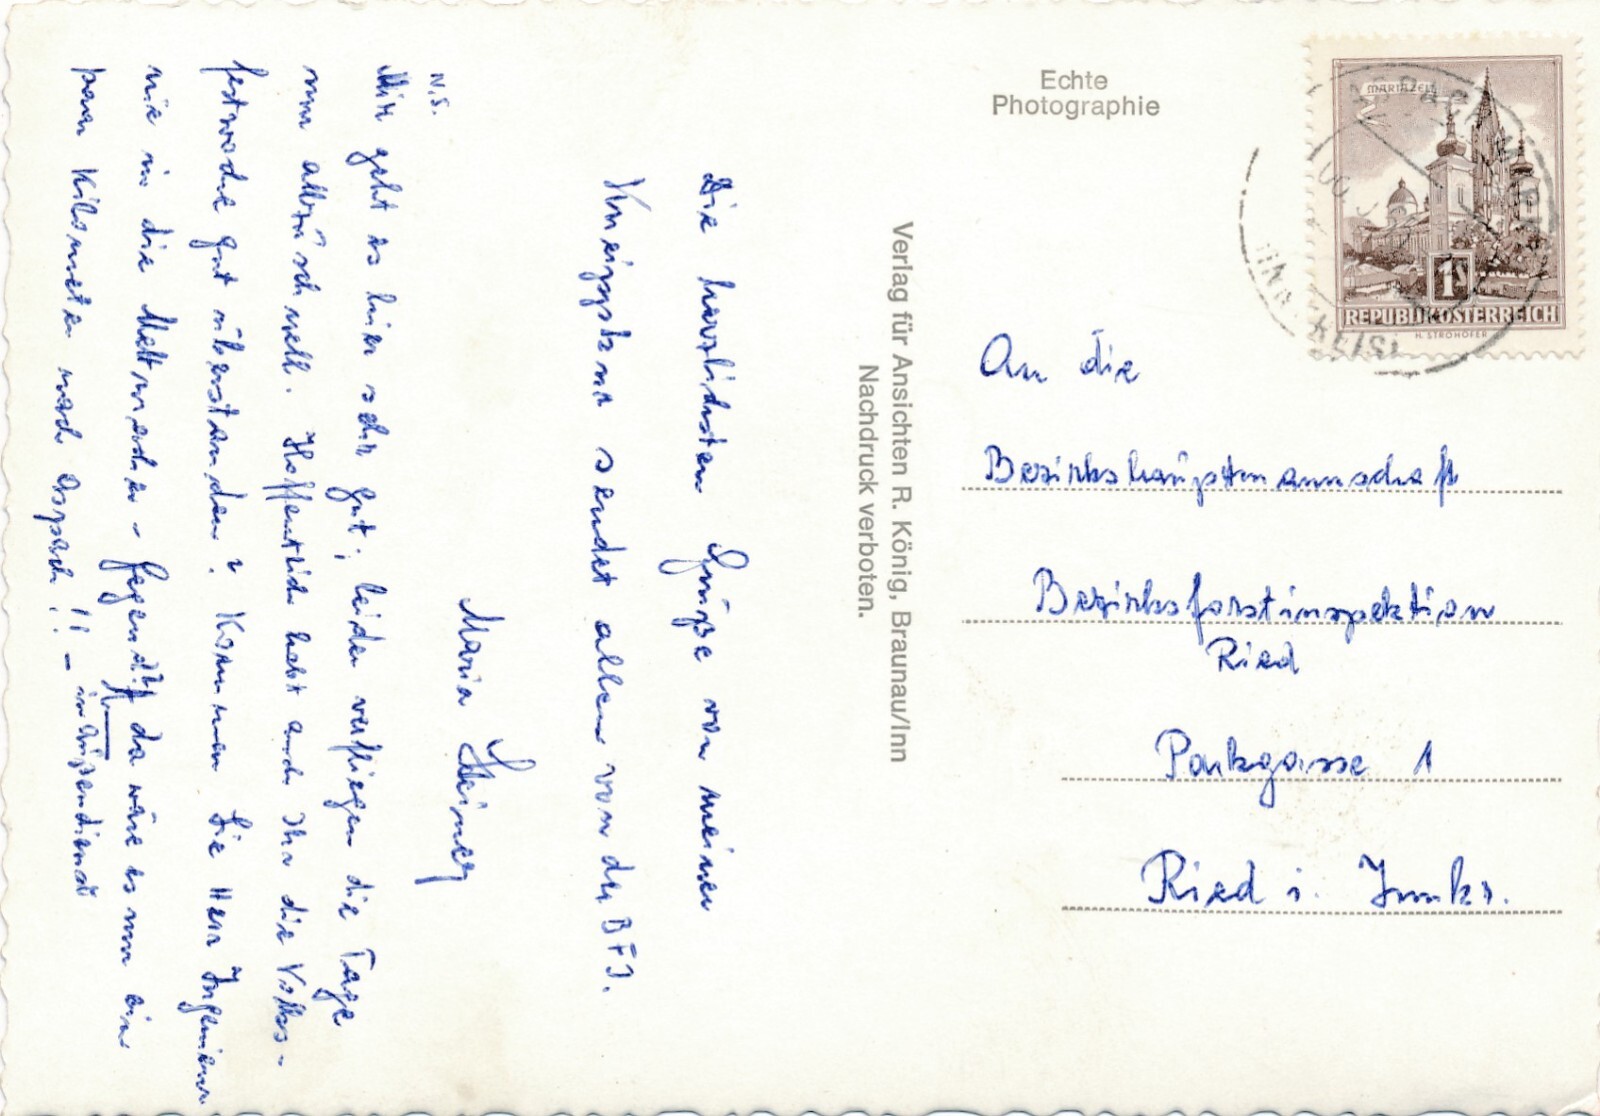 Die herzlichsten Grüße von meiner
Kneippkur sendet allen von der BFI.
Maria
N.S.
Mir geht es hier sehr gut; leider verfliegen die Tage
nur allzu schnell. Hoffentlich habt auch Ihr die Volks-
festwoche gut überstanden? Kommen Sie Herr Ingenieur
nie in die Mettmacher-Gegend? da wäre es nur ein
im Außendienst
paar Kilometer nach Aspach!! -
Echte
Photographie
Verlag für Ansichten R. König, Braunau/Inn
Nachdruck verboten.
MARIAZELL
1S
REPUBLIK ÖSTERREICH
H. STROHOFER
An die
Bezirkshauptmannschaft
Bezirksforstinspektion
Ried
Parkgasse 1
Ried i. Innkr.